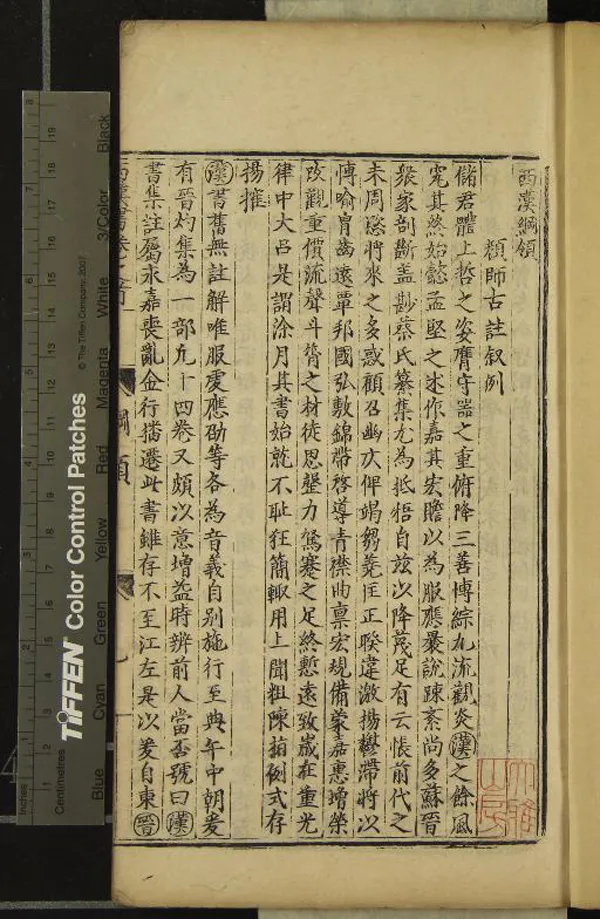 西漢綱領
顏師古註敘例
儲君體上哲之姿膺守器之重俯降三善博綜九流觀炎漢之餘風
究其終始懿孟堅之述作嘉其宏贍以為服應曩說踈紊尚多蘇晉
衆家剖斷盖尠蔡氏纂集尤為抵牾自兹以降蔑足有云悵前代之
未周愍將來之多惑顧召幽仄俾竭芻蕘匡正睽違激揚鬱滯將以
博喻胄齒遠覃邦國弘敷錦帶啓導青襟曲稟宏規備蒙嘉惠增榮
改觀重價流聲斗筲之材徒思罄力駑蹇之足終慙遠致歲在重光
律中大呂是謂涂月其書始就不耻狂簡輙用上聞粗陳指例式存
揚搉
漢書舊無註解唯服䖍應劭等各為音義自别施行至典午中朝爰
有晉灼集為一部凡十四卷又頗以意增益時辨前人當否號曰漢
書集註屬永嘉喪亂金行播遷此書雖存不至江左是以爰自東晉
西漢書卷之首
綱領
大雅
山房
TIFFEN® Color Control Patches
© The Tiffen Company, 2007
Inches
Centimetres
Blue
Cyan
Green
Yellow
Red
Magenta
White
3/Color
Black